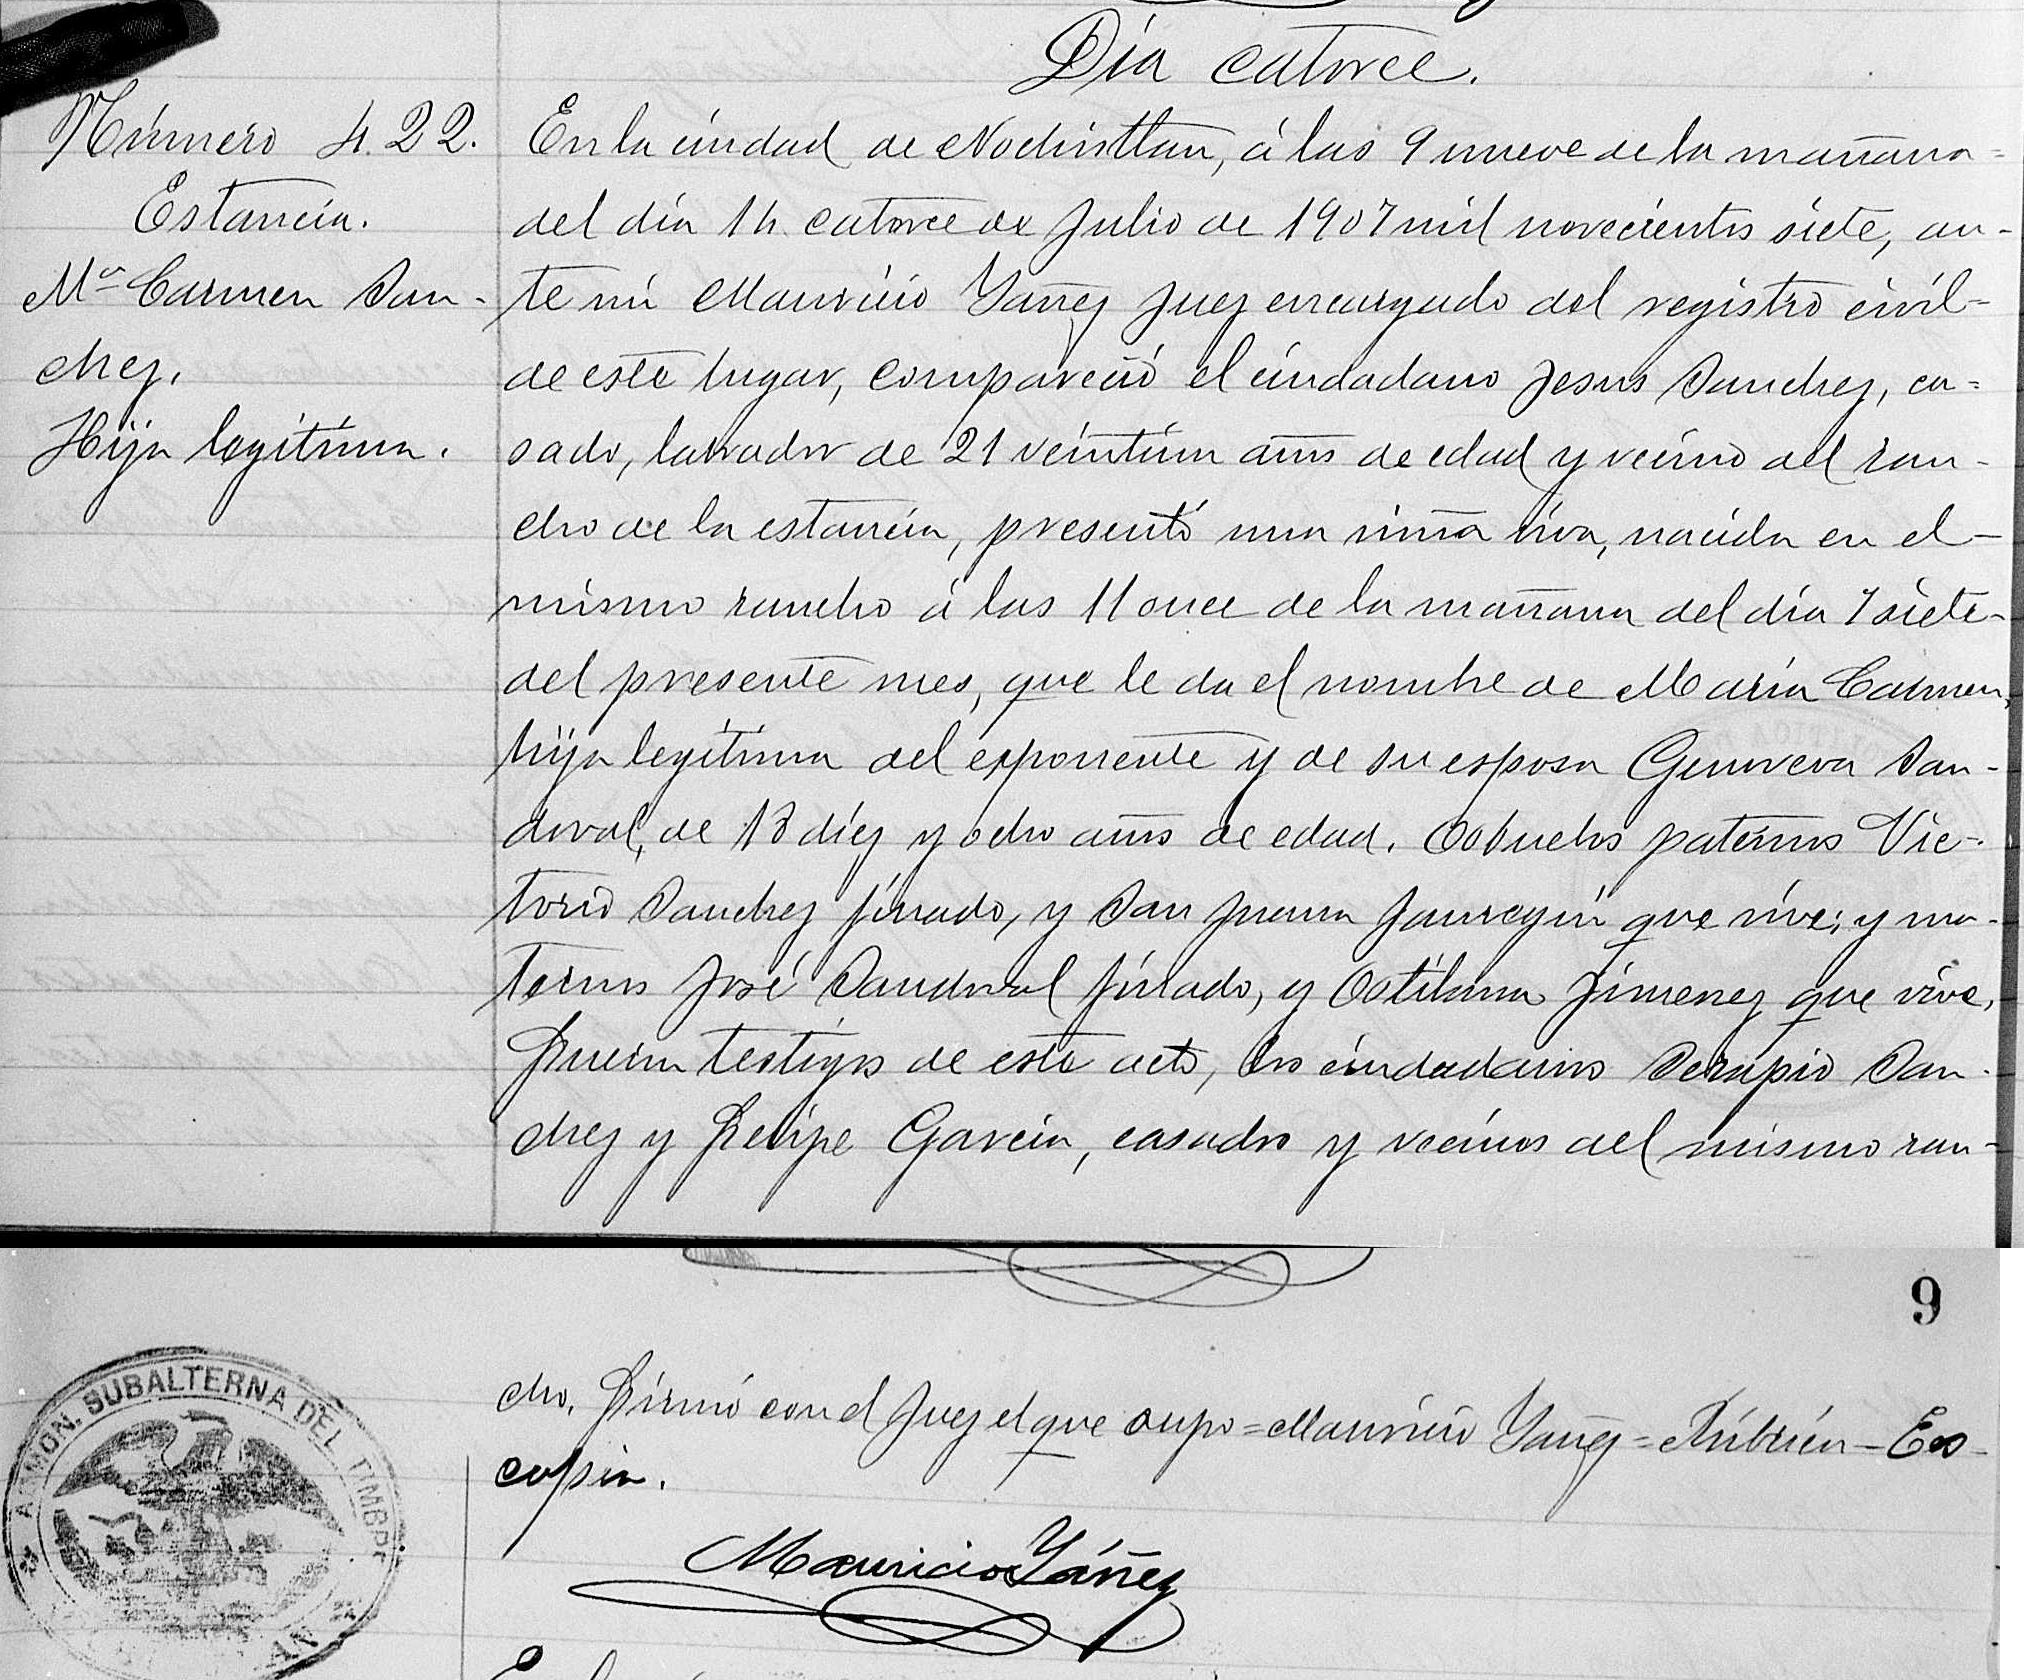 Día catorce.
Número 422.
Estancia.
Ma Carmen San-
chez.
Hija legitima.
En la ciudad de Nochistlan, á las 9 nueve de la mañana=
del día 14 catorce de Julio de 1907 mil novecientos siete, an-
te mí Mauricio Yañez Juez encargado del registro civil=
de este lugar, compareció el ciudadano Jesus Sanchez, ca=
sado, labrador de 21 veintiun años de edad y vecino del ran-
cho de la estancia, presentó una niña viva, nacida en el-
mismo rancho á las 11 once de la mañana del día 7 siete-
del presente mes, que le da el nombre de María Carmen,
hija legítima del exponente y de su esposa Genoveva San-
doval, de 18 diez y ocho años de edad. Abuelos paternos Vic-
torio Sanchez finado, y San Juana Jauregui que vive; y ma-
ternos José Sandoval finado, y Jimenez que vive.
Fueron testigos de este acto, los ciudadanos Serapio San-
chez y Felipe García, casados y vecinos del mismo ran-
9
cho. Firmó con el Juez el que supo=Mauricio Yañez=Rúbrica-Es
copia.
Mauricio Yáñez
ADMON. SUBALTERNA DEL TIMBRE